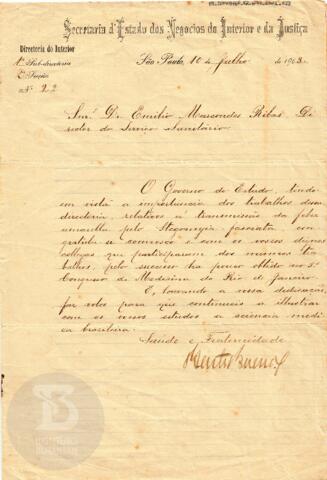 Secretaria d'Estado dos Negocios do Interior e da Justiça
Directoria do Interior
1ª Sub-directoria
2ª Secção
Nº 22
São Paulo, 10 de Julho de 1903.
Snr. Dr. Emilio Marcondes Ribas, Di-
rector do Serviço Sanitario
O Governo do Estado, tendo
em vista a importancia dos trabalhos dessa
directoria, relativos á transmissão da febre
amarella pelo Stegomyia fasciata, con-
gratula-se comvosco e com os vossos dignos
collegas que participaram dos mesmos tra-
balhos, pelo successo ha pouco obtido no 5º
Congresso de Medicina do Rio de Janeiro.
E, louvando a vossa dedicação,
faz votos para que continueis a illustrar
com os vossos estudos a sciencia medi-
ca brasileira.
Saude e Fraternidade
Bento Bueno
INSTITUTO BUTANTAN